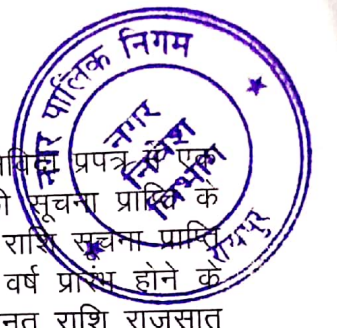 नगर पालिक निगम
नगर
निवेश
विभाग
रायपुर
प्रपत्र में एक
सूचना प्राप्ति के
राशि सूचना प्राप्ति
वर्ष प्रारंभ होने के
राशि राजसात